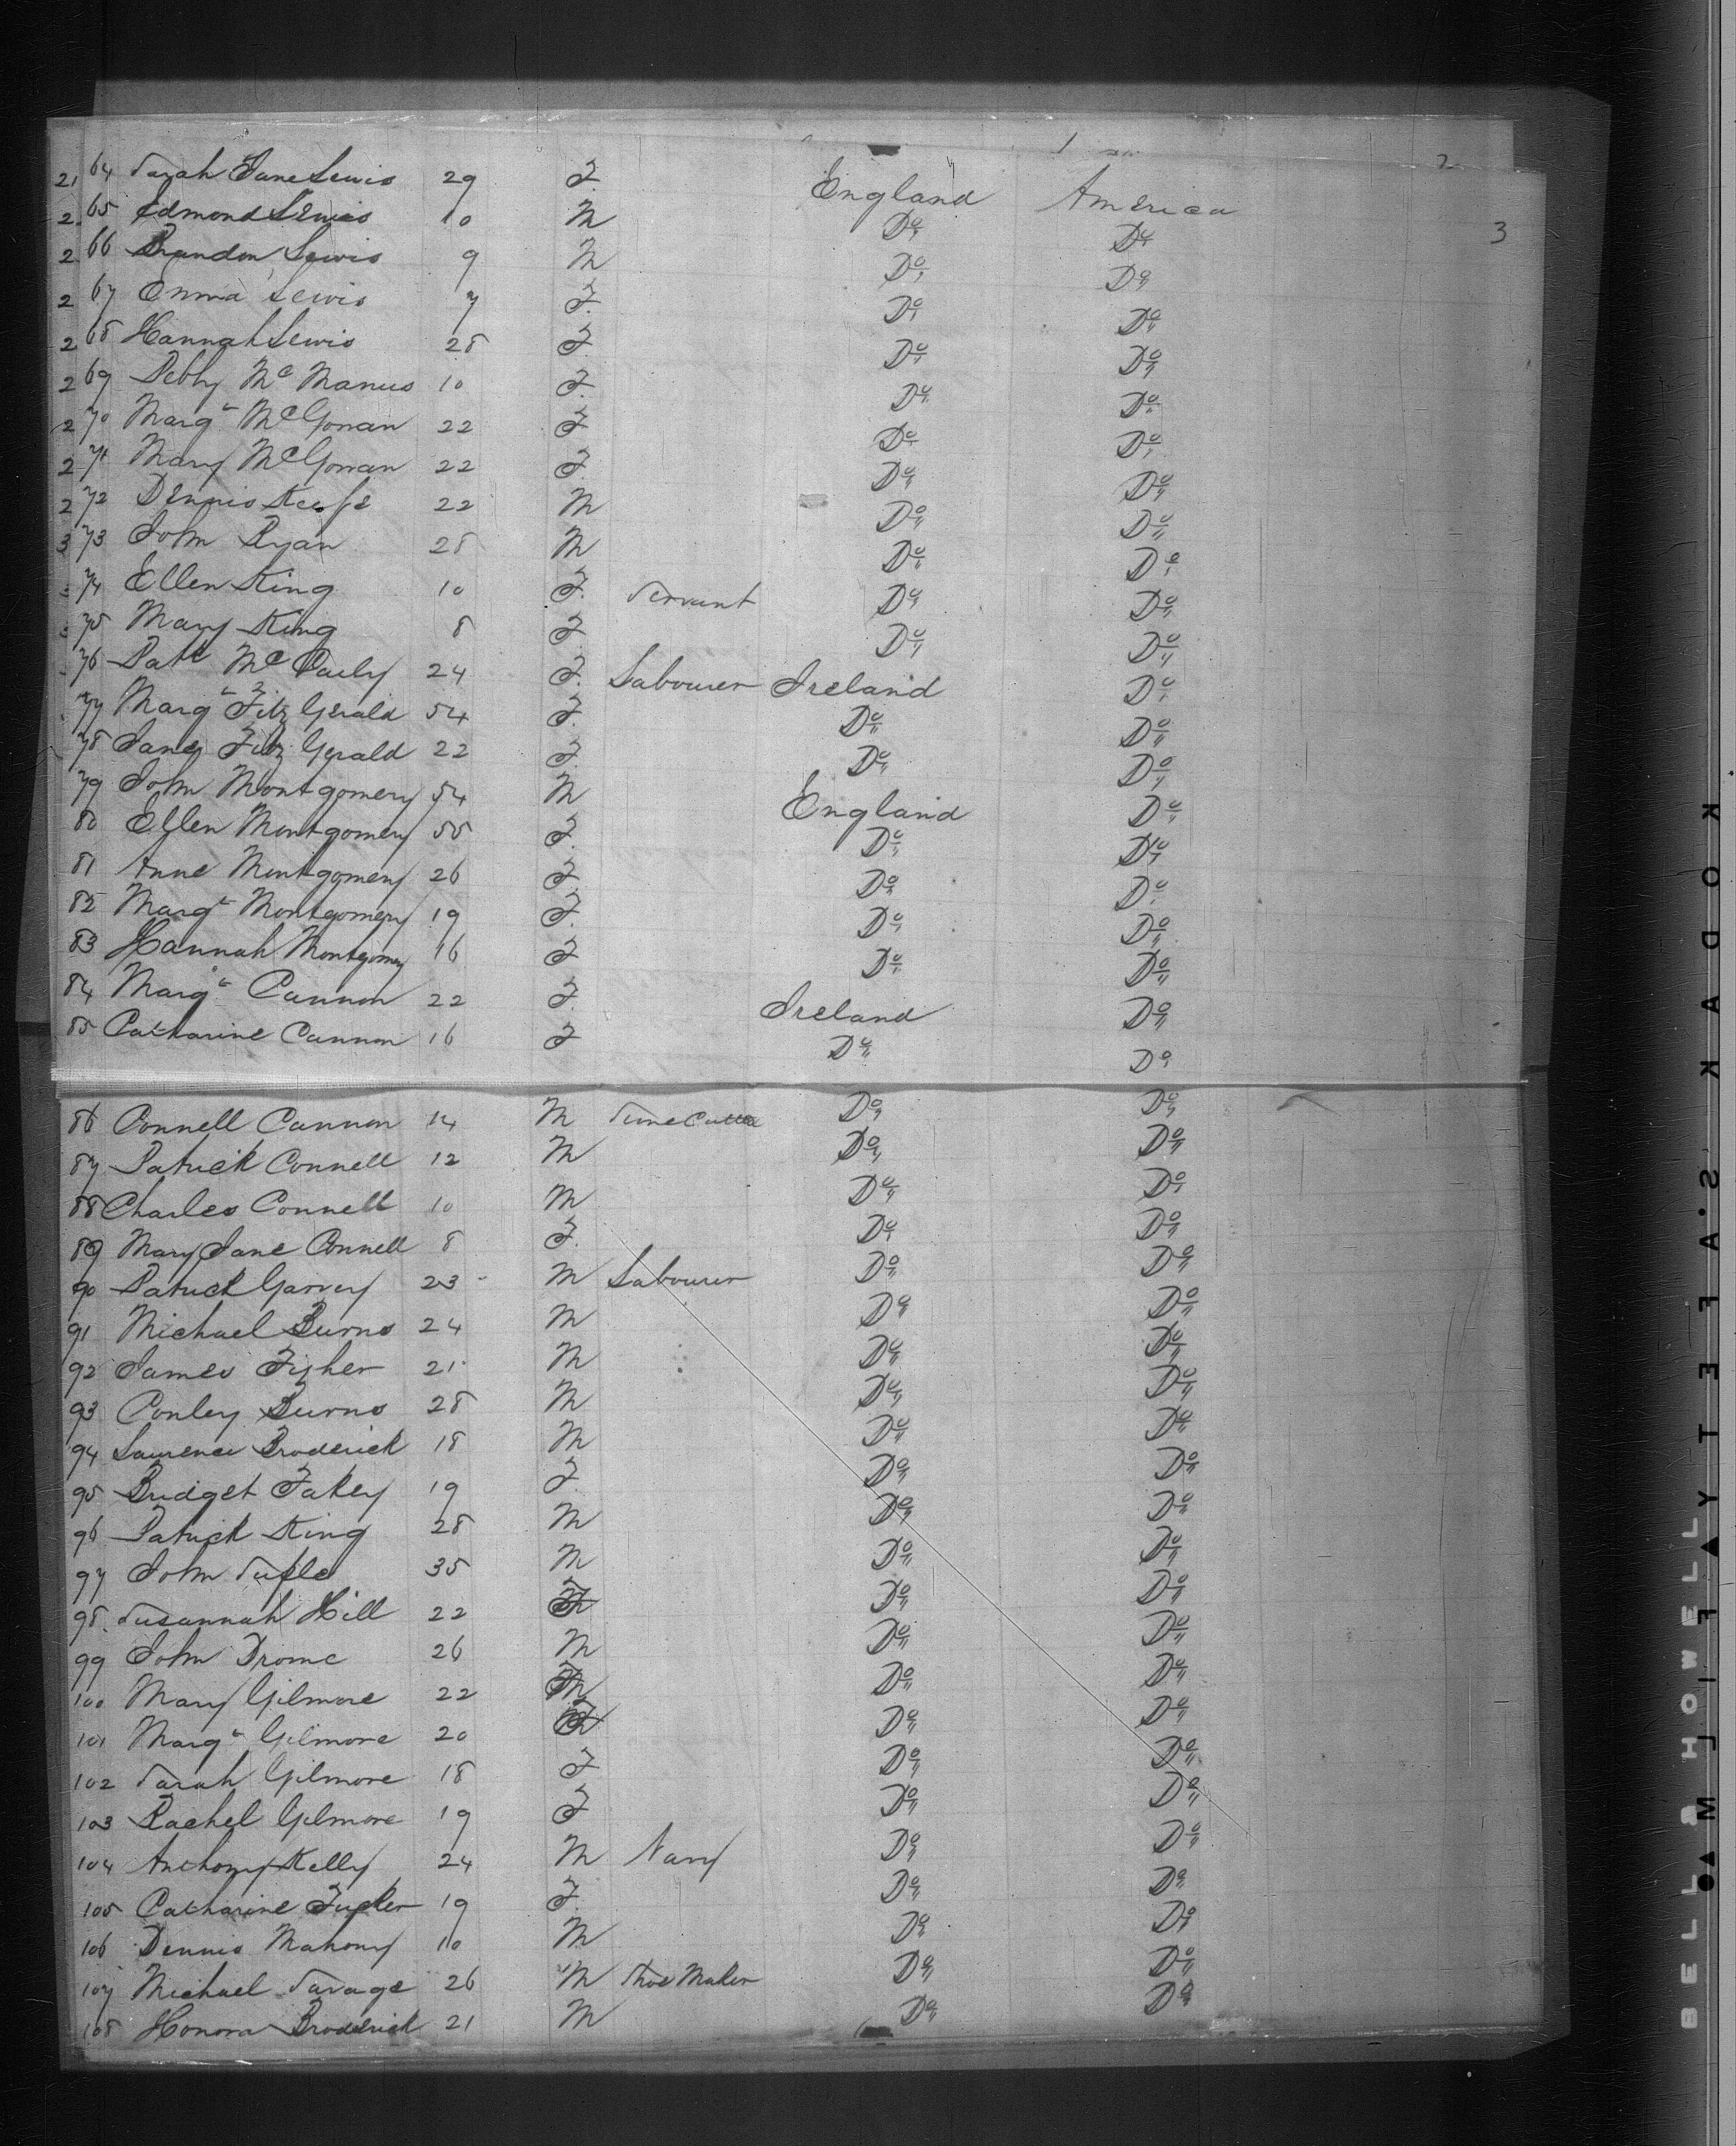 64 Sarah Jane Lewis 29 F. England America
65 Edmond Lewis 10 M Do Do 3
66 Brandon Lewis 9 M Do Do
67 Emma Lewis 7 F. Do Do
68 Hannah Lewis 28 F. Do Do
69 Pebby Mc Manus 10 F. Do Do
70 Margt McGowan 22 F. Do Do
71 Mary McGowan 22 F. Do Do
72 Dennis Keefe 22 M Do Do
73 John Ryan 28 M Do Do
74 Ellen King 10 F. Servant Do Do
75 Mary King 8 F. Do Do
76 Patk Mc 24 F. Labourer Ireland Do
77 Margt Fitz Gerald 54 F. Do Do
78 Jane Fitz Gerald 22 F. Do Do
79 John Montgomery 54 M England Do
80 Ellen Montgomery 55 F. Do Do
81 Anne Montgomery 26 F. Do Do
82 Margt Montgomery 19 F. Do Do
83 Hannah Montgomy 16 F Do Do
84 Margt Cannon 22 F. Ireland Do
85 Catharine Cannon 16 F Do Do
86 Connell Cannon 14 M Do Do
87 Patrick Connell 12 M Do Do
88 Charles Connell 10 M Do Do
89 Mary Jane Connell 8 F. Do Do
90 Patrick Garvey 23 M Labourer Do Do
91 Michael Burns 24 M Do Do
92 James Fisher 21 M Do Do
93 Conley Burns 28 M Do Do
94 Laurence Broderick 18 M Do Do
95 Bridget Fahey 19 F. Do Do
96 Patrick King 28 M Do Do
97 John 35 M Do Do
98 Susannah Hill 22 F Do Do
99 John Drome 26 M Do Do
100 Mary Gilmore 22 F Do Do
101 Margt Gilmore 20 F Do Do
102 Sarah Gilmore 18 F Do Do
103 Rachel Gilmore 19 F Do Do
104 Anthony Kelly 24 M Navy Do Do
105 Catharine Tucker 19 F. Do Do
106 Dennis Mahony 10 M Do Do
107 Michael Savage 26 M Shoe Maker Do Do
108 Honora Broderick 21 M Do Do
KODAK S.AFETY FILM
BELL & HOWELL